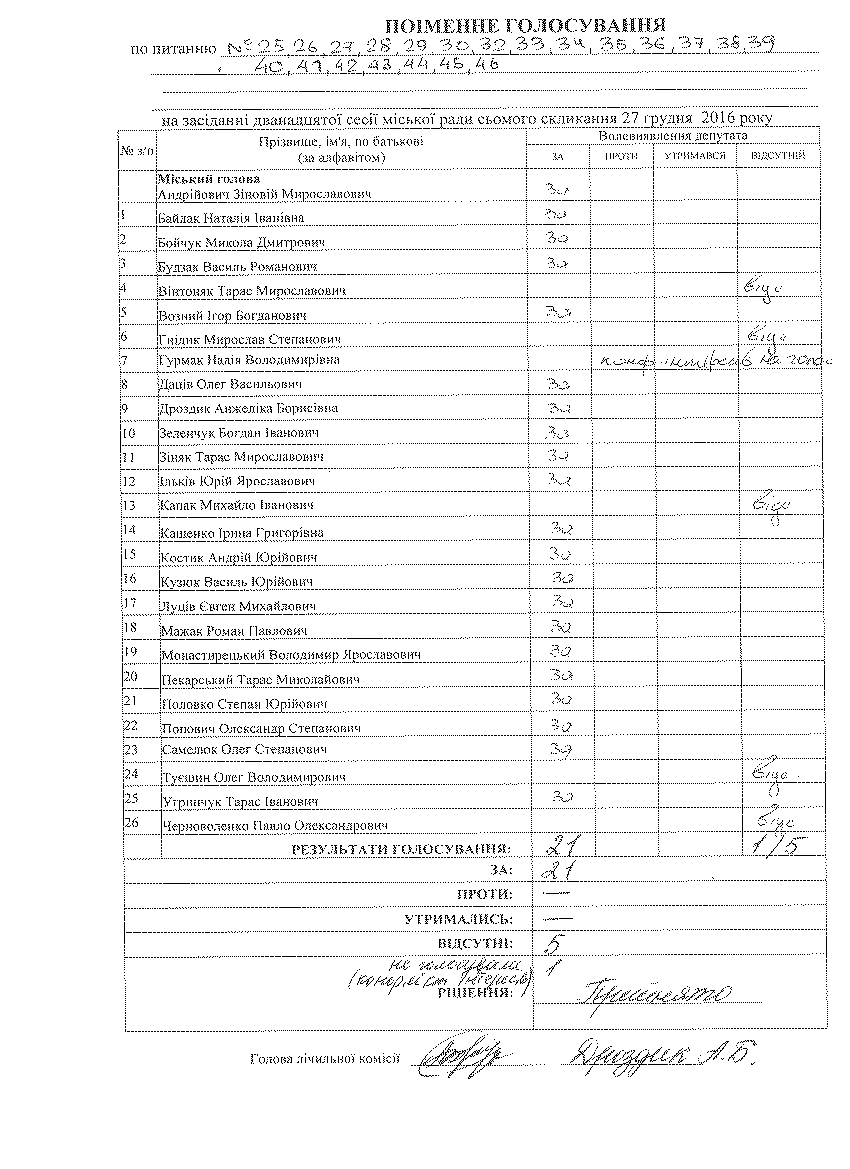 ПОІМЕННЕ ГОЛОСУВАННЯ
по питанню № 25, 26, 27, 28, 29, 30, 32, 33, 34, 35, 36, 37, 38, 39
40, 41, 42, 43, 44, 45, 46
на засіданні дванадцятої сесії міської ради сьомого скликання 27 грудня 2016 року
№ з/п Прізвище, ім'я, по батькові (за алфавітом) Волевиявлення депутата
ЗА ПРОТИ УТРИМАВСЯ ВІДСУТНІЙ
Міський голова
Андрійович Зіновій Мирославович За
1 Байдак Наталія Іванівна За
2 Бойчук Микола Дмитрович За
3 Будзак Василь Романович За
4 Вінтоняк Тарас Мирославович відс
5 Возний Ігор Богданович За
6 Гнідик Мирослав Степанович відс
7 Гурмак Надія Володимирівна конф
8 Даців Олег Васильович За
9 Дроздик Анжеліка Борисівна За
10 Зеленчук Богдан Іванович За
11 Зіняк Тарас Мирославович За
12 Ільків Юрій Ярославович За
13 Капак Михайло Іванович відс
14 Кащенко Ірина Григорівна За
15 Костик Андрій Юрійович За
16 Кузюк Василь Юрійович За
17 Луців Євген Михайлович За
18 Мажак Роман Павлович За
19 Монастирецький Володимир Ярославович За
20 Пекарський Тарас Миколайович За
21 Половко Степан Юрійович За
22 Попович Олександр Степанович За
23 Самелюк Олег Степанович За
24 Туєшин Олег Володимирович відс
25 Угринчук Тарас Іванович За
26 Черноволенко Павло Олександрович відс
РЕЗУЛЬТАТИ ГОЛОСУВАННЯ: 21 1/5
ЗА: 21
ПРОТИ: —
УТРИМАЛИСЬ: —
ВІДСУТНІ: 5
не голосувала 1
(конфлікт інтересів)
РІШЕННЯ: Прийнято
Голова лічильної комісії Дроздик А.Б.